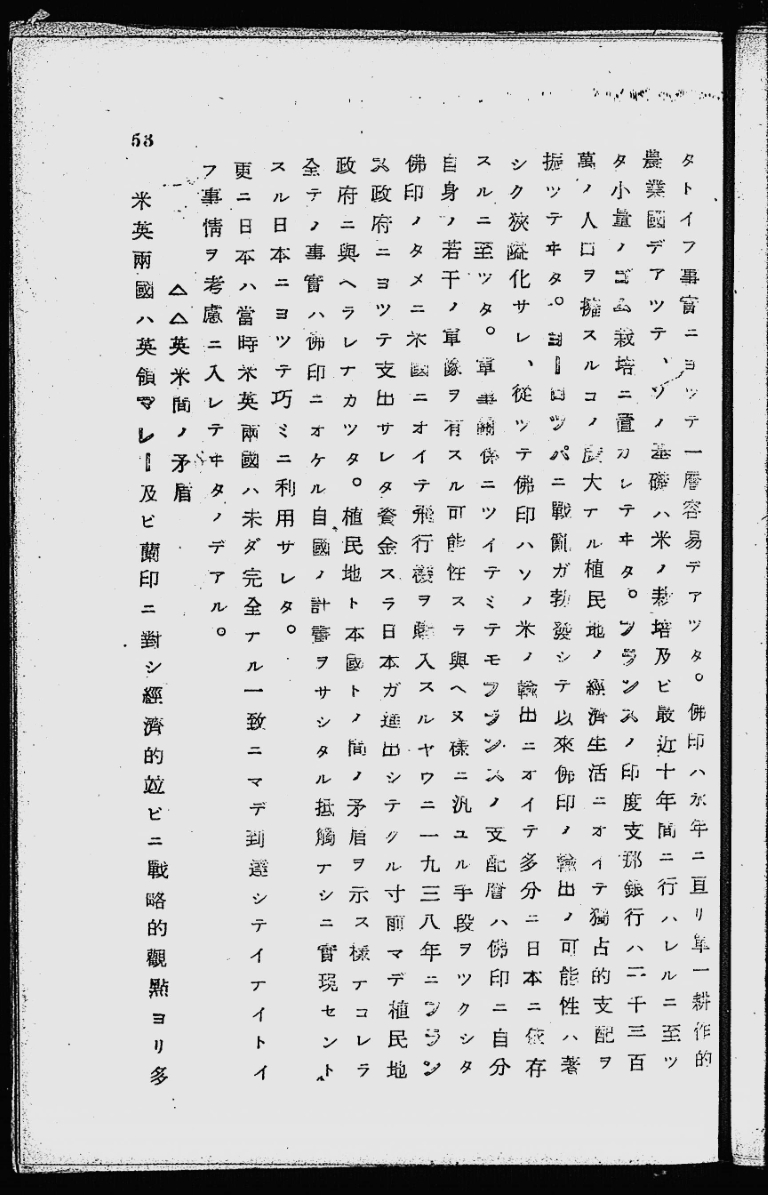 タトイフ事實ニヨツテ一層容易デアツタ。佛印ハ永年ニ亘リ單一耕作的
農業國デアツテ、ソノ基礎ハ米ノ栽培及ビ最近十年間ニ行ハレルニ至ツ
タ小量ノゴム栽培ニ置カレテヰタ。フランスノ印度支那銀行ハ二千三百
萬ノ人口ヲ擁スルコノ厖大ナル植民地ノ經濟生活ニオイテ獨占的支配ヲ
振ツテヰタ。ヨーロツパニ戰亂ガ勃發シテ以來佛印ノ輸出ノ可能性ハ著
シク狹隘化サレ、從ツテ佛印ハソノ米ノ輸出ニオイテ多分ニ日本ニ依存
スルニ至ツタ。軍事關係ニツイテミテモフランスノ支配層ハ佛印ニ自分
自身ノ若干ノ軍隊ヲ有スル可能性スラ與ヘヌ樣ニ汎ユル手段ヲツクシタ
佛印ノタメニ米國ニオイテ飛行機ヲ購入スルヤウニ一九三八年ニフラン
ス政府ニヨツテ支出サレタ資金スラ日本ガ進出シテクル寸前マデ植民地
政府ニ與ヘラレナカツタ。植民地ト本國トノ間ノ矛盾ヲ示ス樣ナコレラ
全テノ事實ハ佛印ニオケル自國ノ計畫ヲサシタル抵觸ナシニ實現セント
スル日本ニヨツテ巧ミニ利用サレタ。
更ニ日本ハ當時米英兩國ハ未ダ完全ナル一致ニマデ到達シテイナイトイ
フ事情ヲ考慮ニ入レテヰタノデアル。
△△英米間ノ矛盾
米英兩國ハ英領マレー及ビ蘭印ニ對シ經濟的竝ビニ戰略的觀點ヨリ多
53